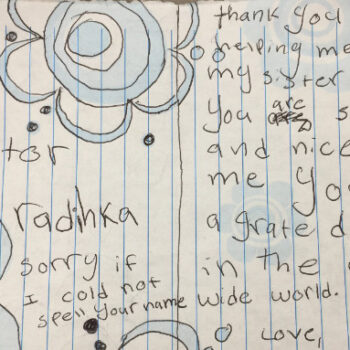 for
radihka
sorry if
I cold not
spell your name
thank you
helping me
my sister
you are s
and nice
me you
a grate d
in the
wide world.
Love,